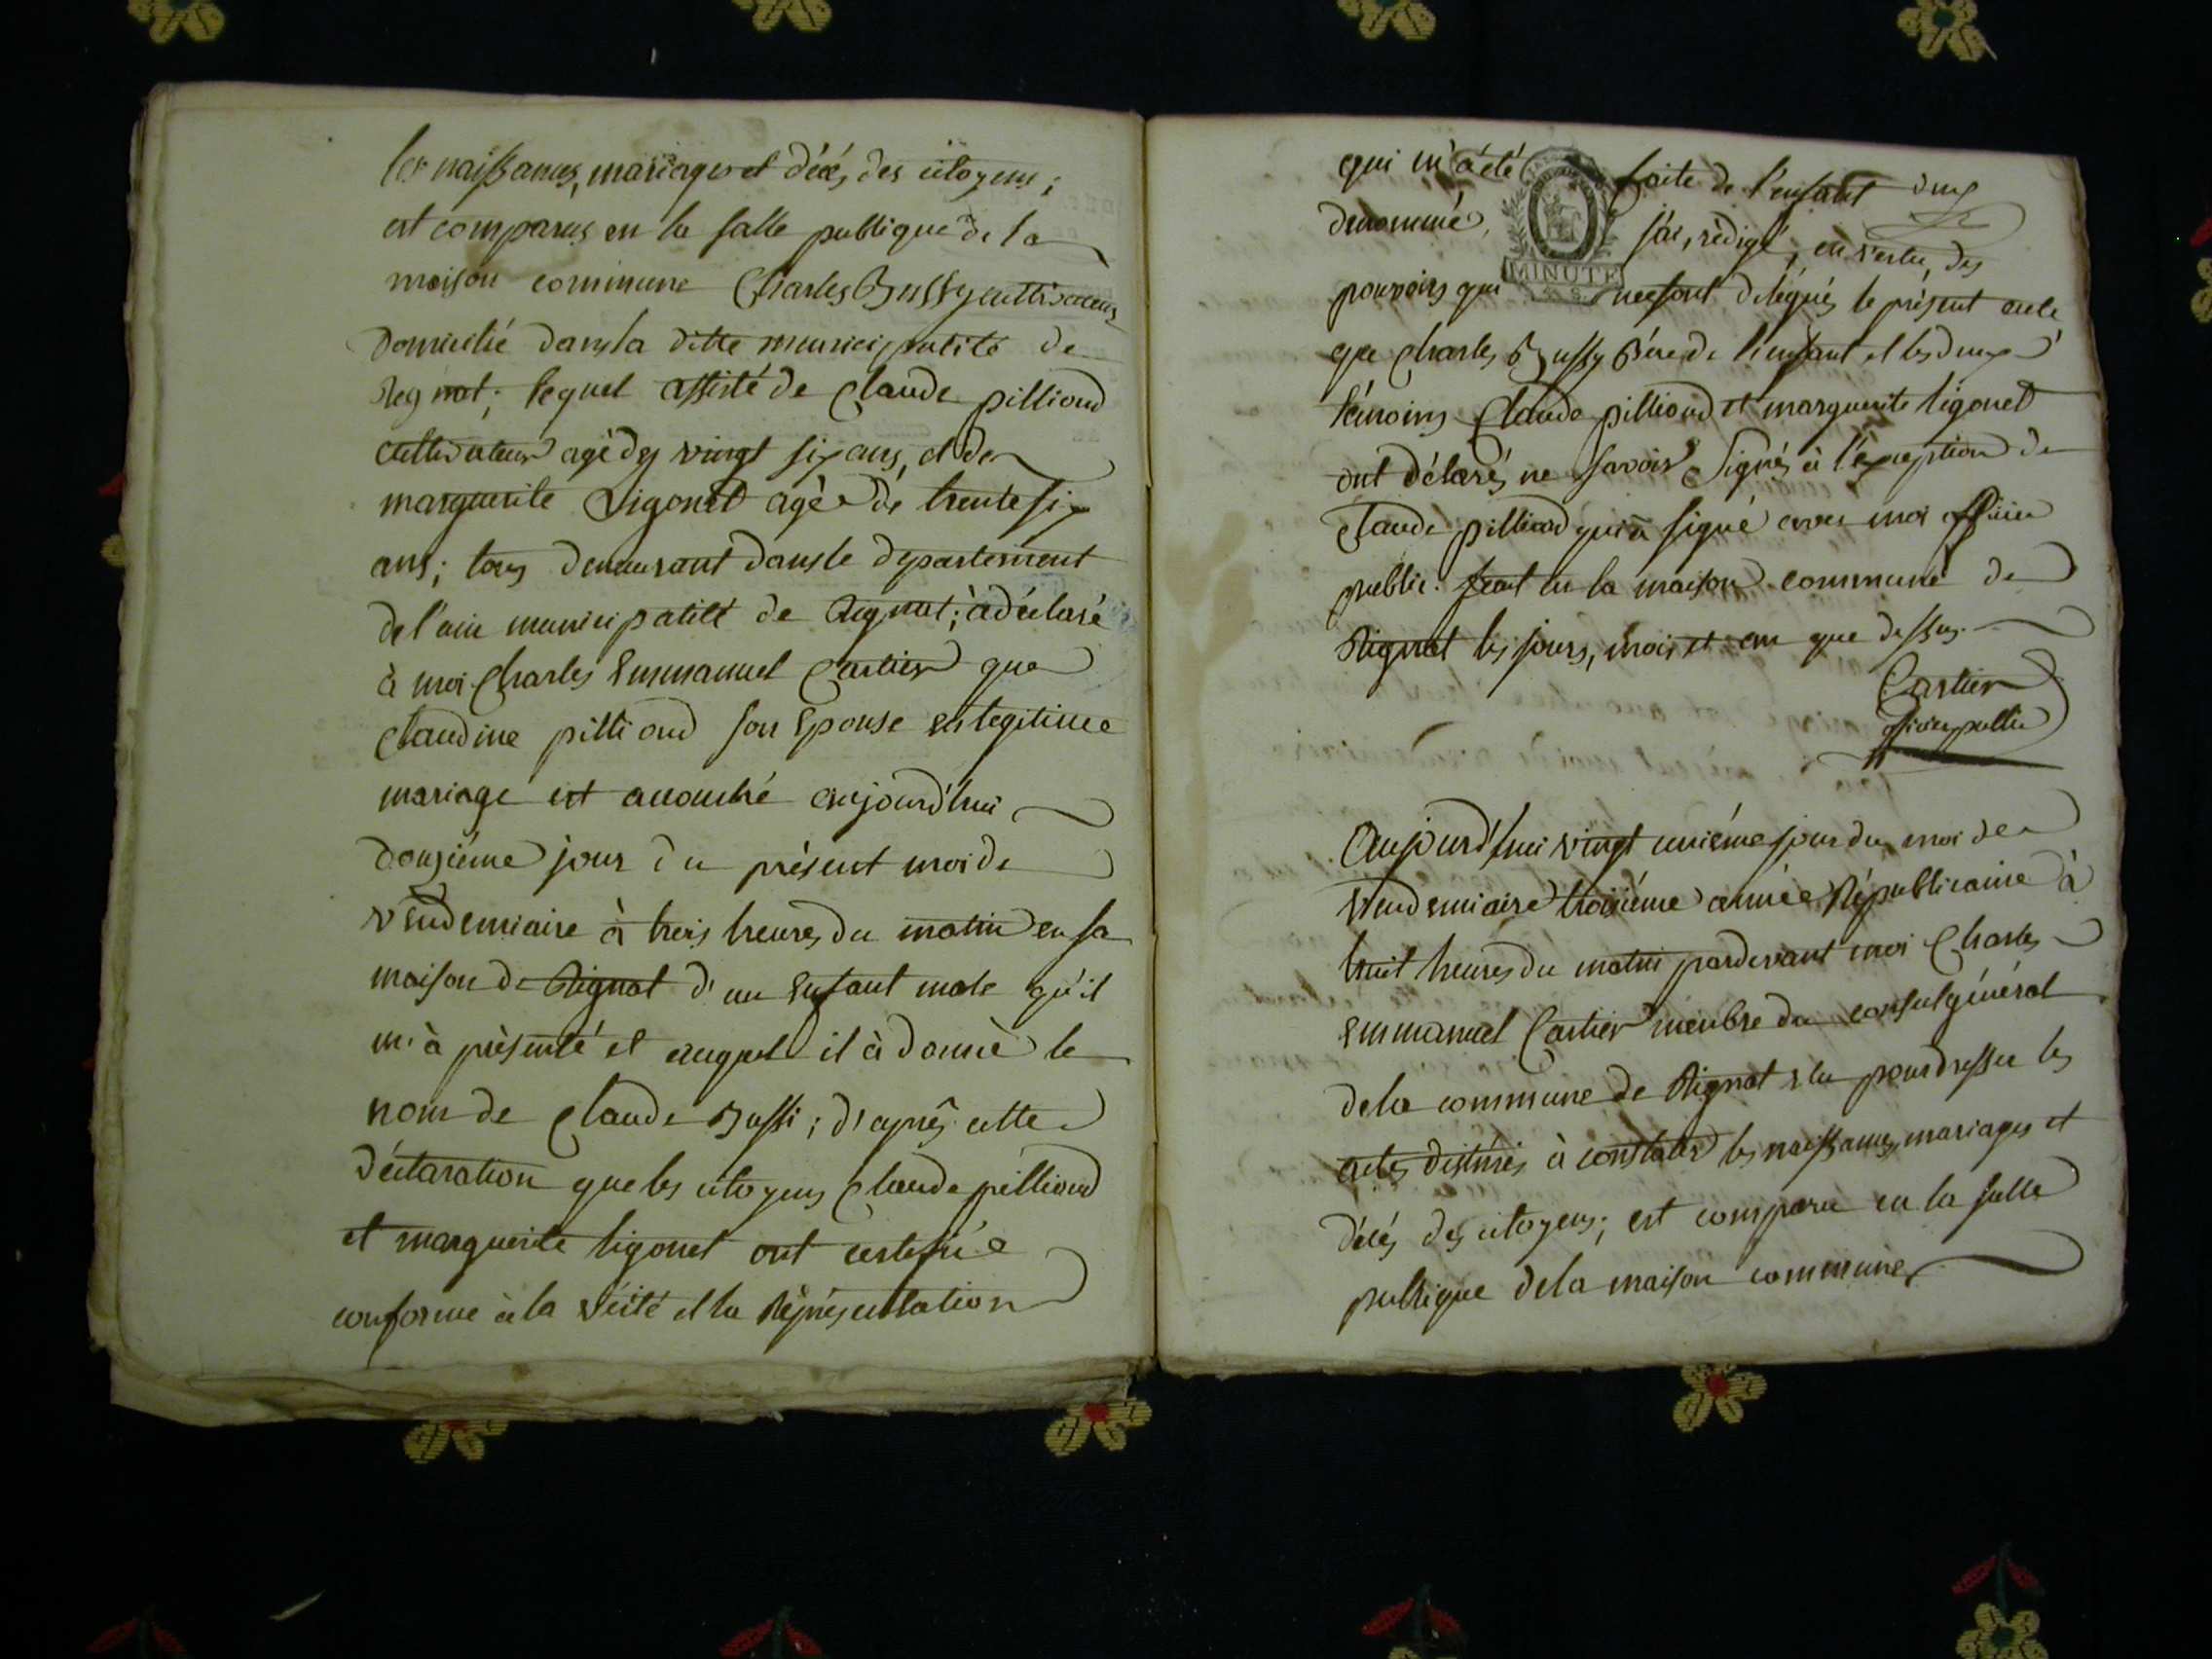 les naissances, mariages et décés des citoyens;
est comparus en la salle publique de la
maison commune Charles Bussy cultivateur
domicilié dans la ditte municipalité de
Rignat; lequel assisté de Claude pilliond
cultivateur agé des vingt six ans, et de
marguerite Ligonet agée de trente six
ans; tous demeurant dans le departement
de l'ain municipalité de Rignat; à déclaré
à moi Charles Emmanuel Cartier que
Claudine pilliond son Epouse en legitime
mariage est accouché aujourd'hui
douzième jour du présent moi de
vendemiaire à trois heures du matin en sa
maison de Rignat d'un Enfant male qu'il
m'à présenté et auquel il à donnè le
nom de Claude Bussi; d'après cette
déclaration que les citoyens Claude pilliond
et marguerite ligonet ont certifié
conforme à la vérité et la Réprésentation
qui m'à été faite de l'enfant
denommé, j'ai, rédigé, en vertu, des
pouvoirs qui me sont délégués le présent acte
que Charles Bussy Pére de l'enfant et les deux
témoins Claude pilliond et marguerite ligonet
ont déclarés ne savoir Signés à l'éxeption de
Claude pilliond qui à signé avec moi officier
public. fait en la maison commune de
Rignat les jours, mois et an que dessus.
Cartier
officier public
Aujourd'hui vingt uniéme jour du moi de
Vendemiaire troisiéme année Républicaine à
huit heures du matin pardevant moi Charles
Emmanuel Cartier membre du conseil général
de la commune de Rignat elu pour dresser les
actes distinés à constater les naissances, mariages et
décés des citoyens; est comparu en la salle
publique de la maison commune
MINUTE